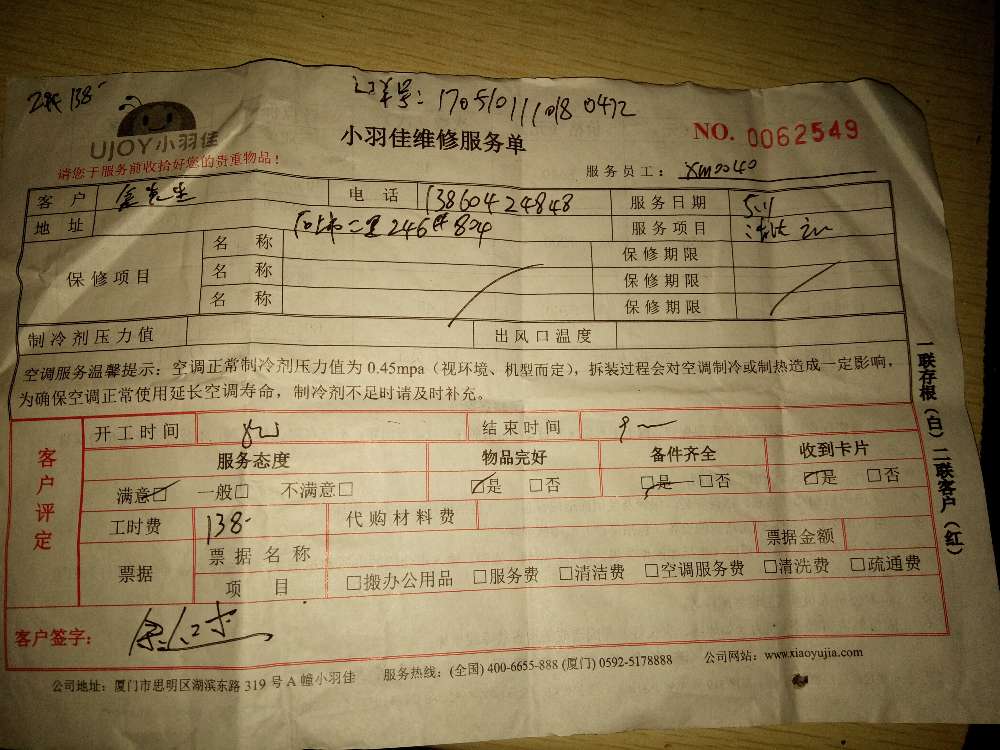 138-
订单号: 1705101110180472
UJOY小羽佳
小羽佳维修服务单
NO. 0062549
请您于服务前收拾好您的贵重物品!
服务员工: XM0040
客 户 金先生 电 话 13860424848 服务日期 5.11
地 址 二里246#804 服务项目
保修项目 名 称 保修期限
名 称 保修期限
名 称 保修期限
制冷剂压力值 出风口温度
空调服务温馨提示:空调正常制冷剂压力值为 0.45mpa(视环境、机型而定),拆装过程会对空调制冷或制热造成一定影响,
为确保空调正常使用延长空调寿命,制冷剂不足时请及时补充。
客户评定
开工时间 结束时间
服务态度 物品完好 备件齐全 收到卡片
满意□ 一般□ 不满意□ □是 □否 □是 □否 □是 □否
工时费 138- 代购材料费
票据 票据名称 票据金额
项 目 □搬办公用品 □服务费 □清洁费 □空调服务费 □清洗费 □疏通费
客户签字:
公司地址:厦门市思明区湖滨东路 319 号 A 幢小羽佳 服务热线:(全国) 400-6655-888 (厦门) 0592-5178888 公司网站:www.xiaoyujia.com
一联存根(白)二联客户(红)